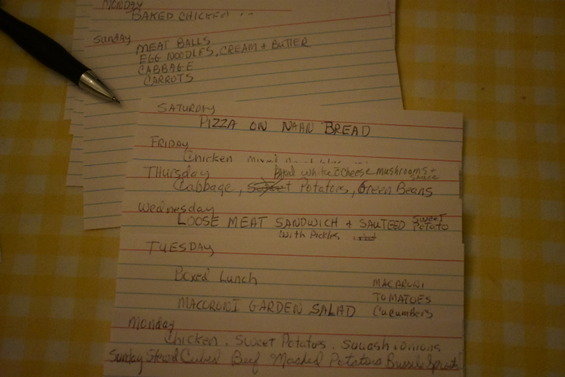 MONDAY
BAKED CHICKEN
Sunday
MEAT BALLS
EGG NOODLES, CREAM + BUTTER
CABBAGE
CARROTS
SATURDAY
PIZZA ON NAAN BREAD
FRIDAY
Chicken mixed
Thursday
and white 2 Cheese Mushrooms
Cabbage, Potatoes, Green Beans
Wednesday
LOOSE MEAT SANDWICH + SAUTEED SWEET POTATO
with Pickles
TUESDAY
Boxed Lunch
MACARONI
TOMATOES
MACORONI GARDEN SALAD
Cucumbers
Monday
Chicken, Sweet Potatoes, Squash + Onions
Sunday Stewed Cubed Beef Mashed Potatoes Brussel Sprouts